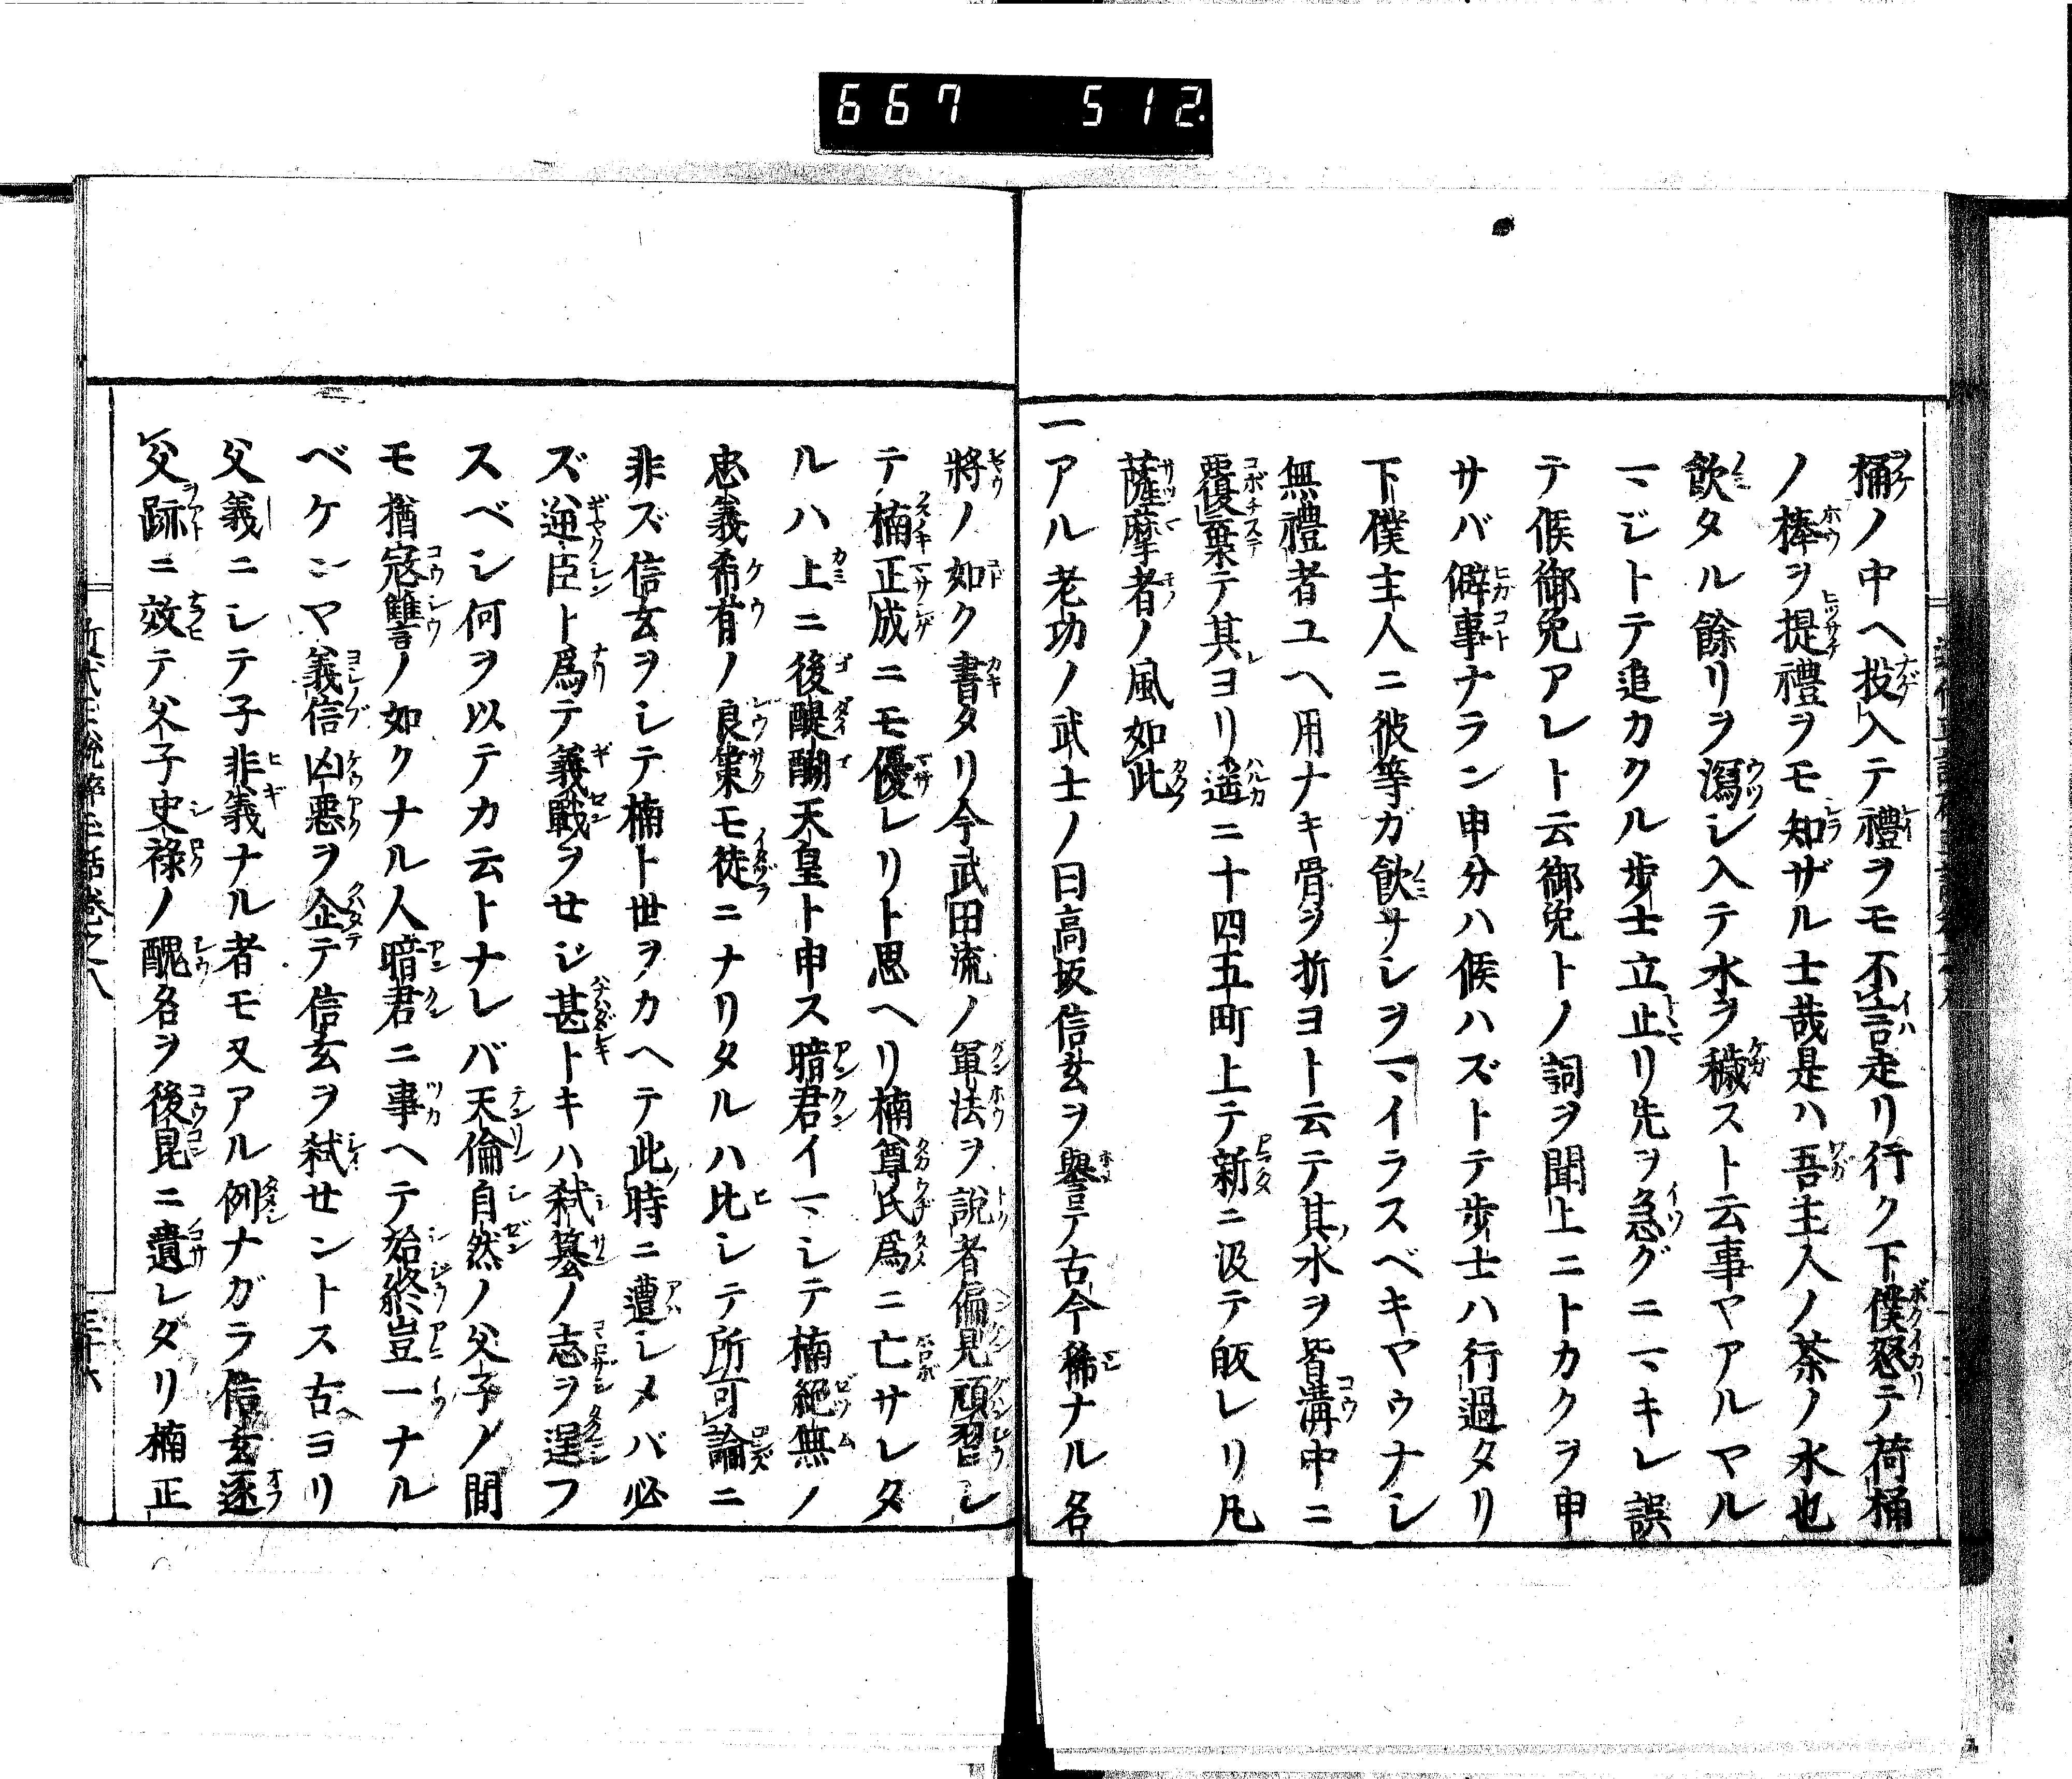 667 512
桶ノ中ヘ投入テ禮ヲモ不言走リ行ク下僕怒テ荷桶
ノ棒ヲ提禮ヲモ知ザル士哉是ハ吾主人ノ茶ノ水也
飲タル餘リヲ瀉シ入テ水ヲ穢スト云事ヤアルマル
マジトテ追カクル歩士立止リ先ヲ急グニマキレ誤
テ候御免アレト云御免トノ詞ヲ聞上ニトカクヲ申
サバ僻事ナラン申分ハ候ハズトテ歩士ハ行過タリ
下僕主人ニ彼等ガ飲サシヲマイラスベキヤウナシ
無禮者ユヘ用ナキ骨ヲ折ヨト云テ其水ヲ皆溝中ニ
覆棄テ其ヨリ遥ニ十四五町上テ新ニ汲テ皈レリ凡
薩摩者ノ風如此
一アル老功ノ武士ノ曰高坂信玄ヲ譽テ古今稀ナル名
將ノ如ク書タリ今武田流ノ軍法ヲ説者偏見頑習シ
テ楠正成ニモ優レリト思ヘリ楠尊氏爲ニ亡サレタ
ルハ上ニ後醍醐天皇ト申ス暗君イマシテ楠絶無ノ
忠義希有ノ良策モ徒ニナリタルハ比シテ所可論ニ
非ズ信玄ヲシテ楠ト世ヲカヘテ此時ニ遭シメバ必
ズ逆臣ト爲テ義戰ヲせジ甚トキハ弑簒ノ志ヲ逞フ
スベシ何ヲ以テカ云トナレバ天倫自然ノ父子ノ間
モ猶寇讐ノ如クナル人暗君ニ事ヘテ始終豈一ナル
ベケンヤ義信凶悪ヲ企テ信玄ヲ弑せントス古ヘヨリ
父義ニシテ子非義ナル者モ又アル例ナガラ信玄逐
父跡ニ效テ父子史祿ノ醜名ヲ後昆ニ遺レタリ楠正